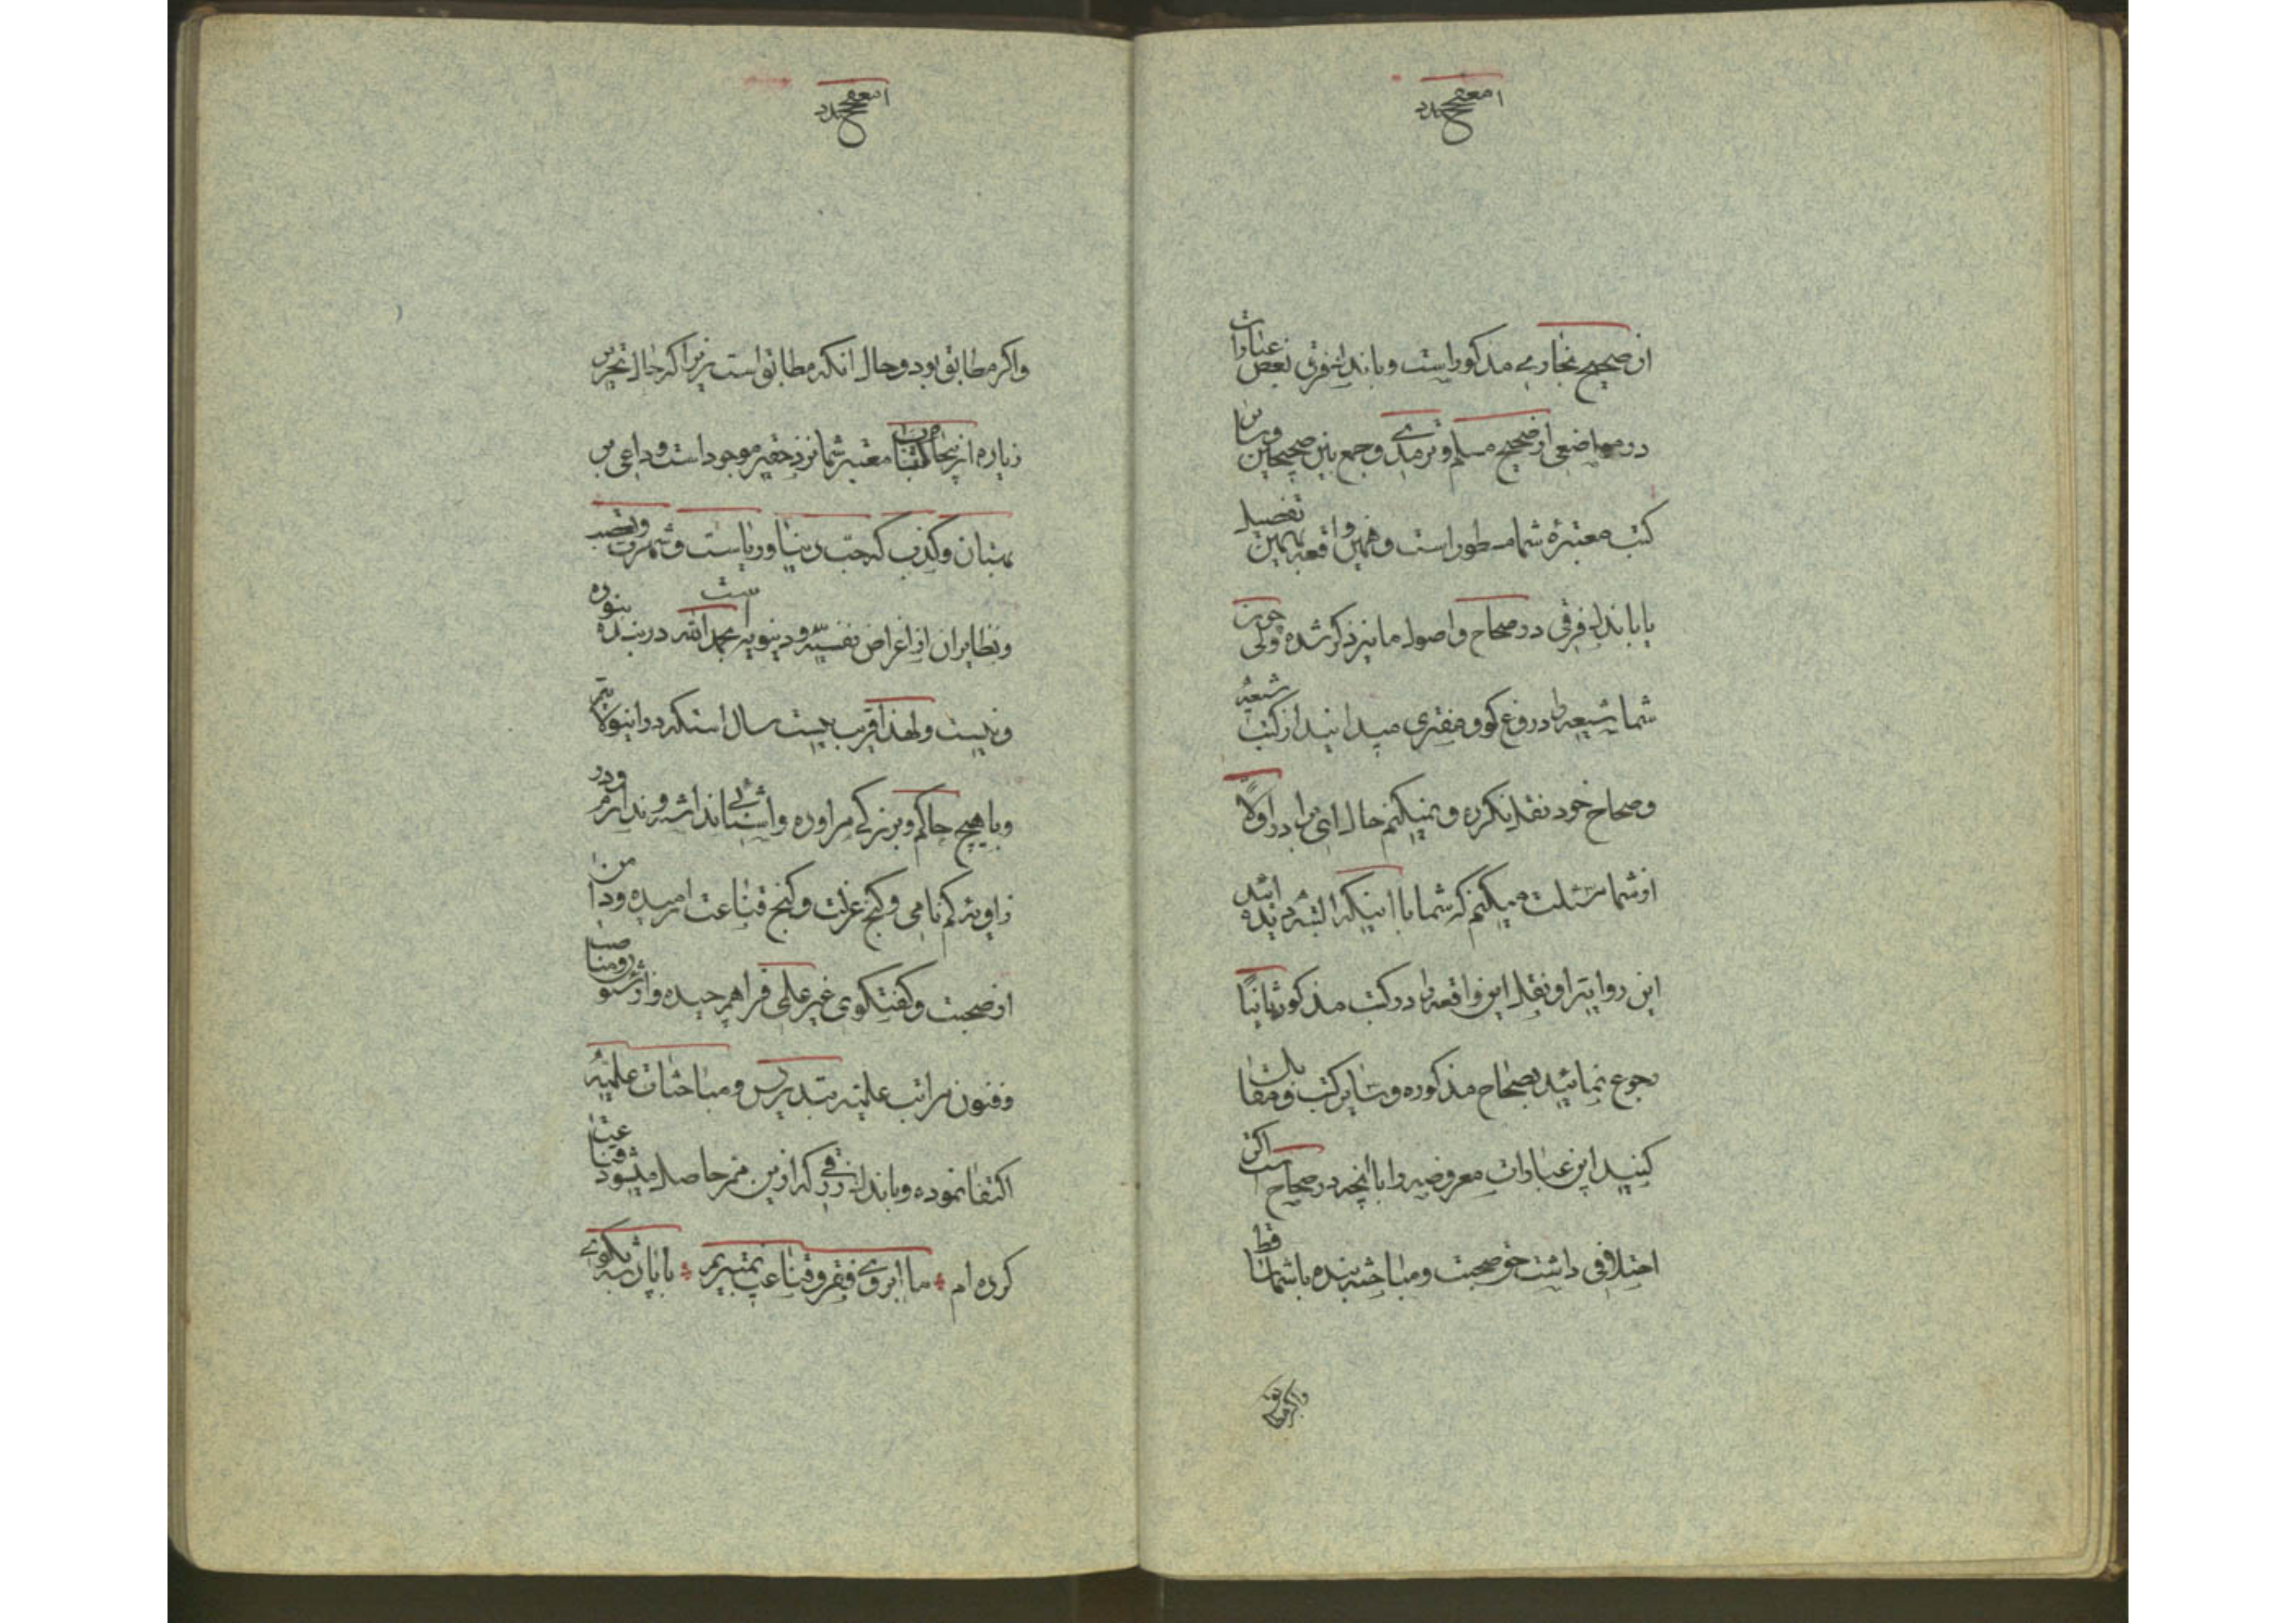 از صحیح بخاری مذکور است و باندک فرقی بعض عبارات
در مواضعی از صحیح مسلم و ترمذی و جمع بین صحیحین و سایر
کتب معتبرهٔ شما مسطور است و همین واقعه بهمین تفصیل
یا باندک فرقی در صحاح و اصول ما نیز ذکر شده ولی چون
شما شیعه را دروغ کو و مفتری میدانید از کتب شیعه
و صحاح خود نقل نکرده و نمیکنم حال ای برادر اولاً
از شما مسئلت میکنم که شما با اینکه البته دیده اید
این روایة و نقل این واقعه را در کتب مذکوره ثانیاً
رجوع نمائید بصحاح مذکوره و سایر کتب و مقابله
کنید این عبارات معروضه را با آنچه در صحاح است اکر
اختلافی داشت حق صحبت و مباحثه بنده با شما ساقط
واکر مطابق
واکر مطابق بود و حال آنکه مطابق است زیرا که حال تحریر
زیاده از پنجاه کتاب معتبر شما نزد حقیر موجود است و داعی بر
بهتان و کذب که حب دنیا و ریاست و شهرت و تعصب
و نظایر آن از اغراض نفسیه و دنیویه است بحمد الله در بنده نبوده
و نیست و لهذا قریب بیست سال است که در این ولایتم
و با هیچ حاکم و بزرکی مراوده و آشنائی نداشته و ندارم و در
زاویه کم نامی و کنج عزلت و کنج قناعت آرمیده و دامن
از صحبت و کفتکوی غیر علمی فراهم چیده و از شئون و مناصب
و فنون مراتب علمیه بتدریس و مباحثات علمیه
اکتفا نموده و باندک رزقی که از این ممر حاصل میشود قناعت
کرده ام ما آبروی فقر و قناعت نمیبریم با پادشه بکوی